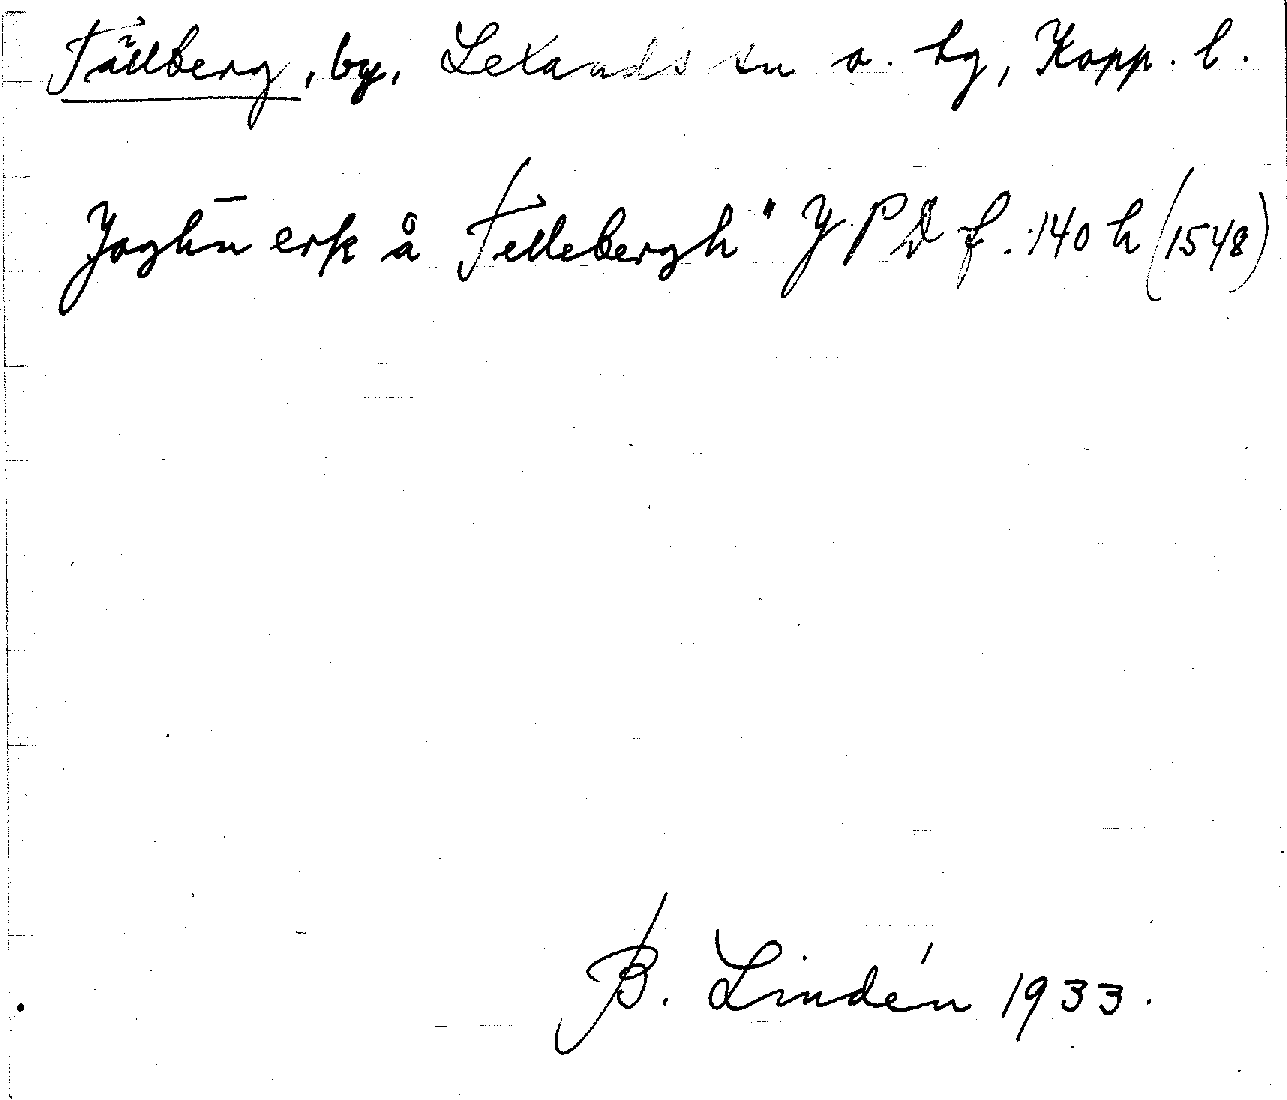 Tällberg, by, Leksands sn o. hg, Kopp. l.
Joghn̄ erk å Tellebergh" J P D f. 140 h (1548)
B. Lindén 1933.